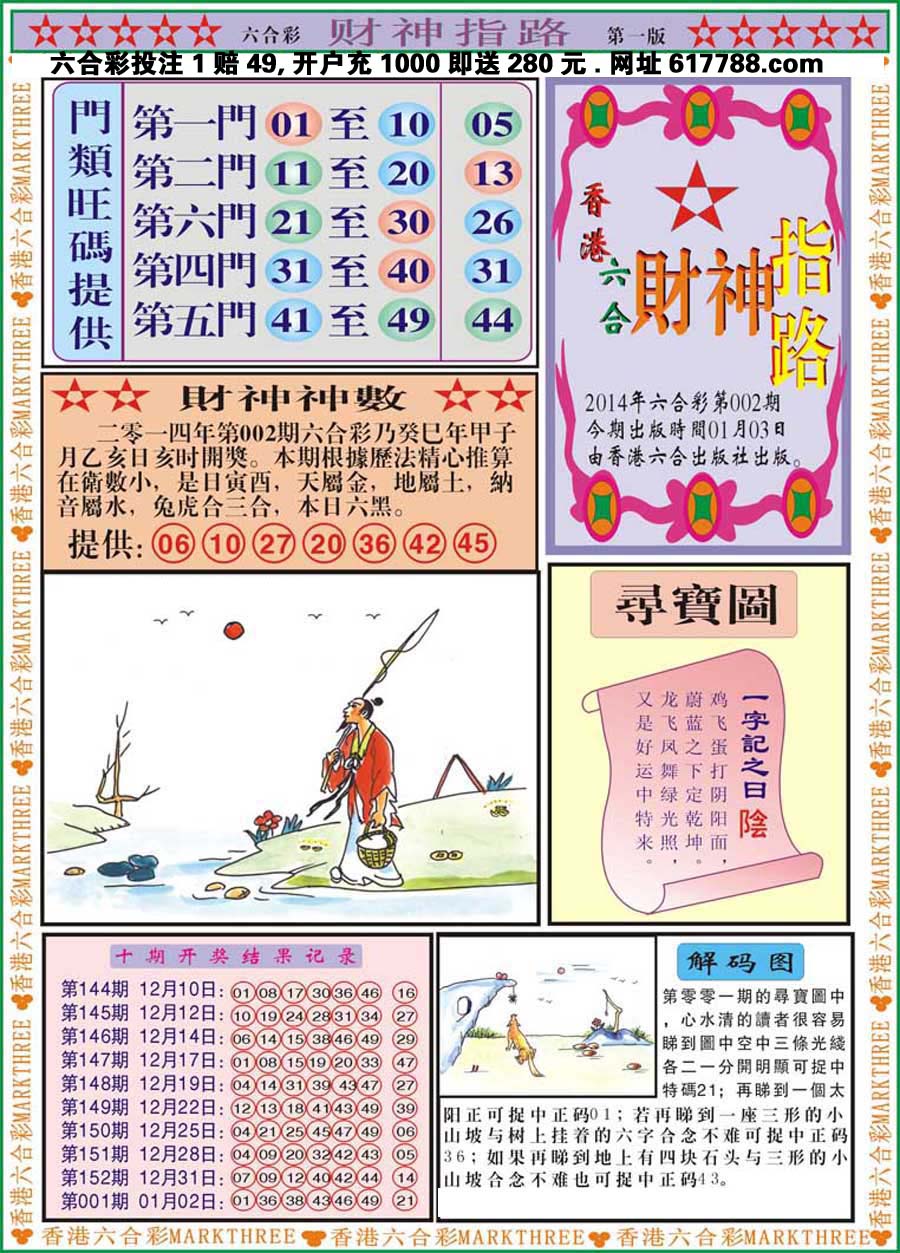 六合彩 财神指路 第一版
六合彩投注 1 赔 49, 开户充 1000 即送 280 元 . 网址 617788.com
門類旺碼提供
第一門 01 至 10 05
第二門 11 至 20 13
第六門 21 至 30 26
第四門 31 至 40 31
第五門 41 至 49 44
香港六合
財神指路
2014年六合彩第002期
今期出版時間01月03日
由香港六合出版社出版。
財神神數
二零一四年第002期六合彩乃癸巳年甲子
月乙亥日亥时開獎。本期根據歷法精心推算
在衛數小，是日寅酉，天屬金，地屬土，納
音屬水，兔虎合三合，本日六黑。
提供: 06 10 27 20 36 42 45
尋寶圖
一字記之曰 陰
鸡飞蛋打阴阳面，
蔚蓝之下定乾坤。
龙飞凤舞绿光照，
又是好运中特来。
十期开奖结果记录
第144期 12月10日: 01 08 17 30 36 46 16
第145期 12月12日: 10 19 24 28 31 34 27
第146期 12月14日: 06 14 15 38 46 49 29
第147期 12月17日: 01 08 15 19 20 33 47
第148期 12月19日: 04 14 31 39 43 47 27
第149期 12月22日: 12 13 18 41 43 49 39
第150期 12月25日: 04 21 25 45 47 49 06
第151期 12月28日: 04 09 20 32 42 43 05
第152期 12月31日: 07 09 12 40 42 44 14
第001期 01月02日: 01 36 38 43 46 49 21
解码图
第零零一期的尋寶圖中
，心水清的讀者很容易
睇到圖中空中三條光綫
各二一分開明顯可捉中
特碼21；再睇到一個太
阳正可捉中正码01；若再睇到一座三形的小
山坡与树上挂着的六字合念不难可捉中正码
36；如果再睇到地上有四块石头与三形的小
山坡合念不难也可捉中正码43。
香港六合彩MARKTHREE 香港六合彩MARKTHREE 香港六合彩MARKTHREE
香港六合彩MARKTHREE 香港六合彩MARKTHREE 香港六合彩MARKTHREE 香港六合彩MARKTHREE 香港六合彩MARKTHREE
香港六合彩MARKTHREE 香港六合彩MARKTHREE 香港六合彩MARKTHREE 香港六合彩MARKTHREE 香港六合彩MARKTHREE